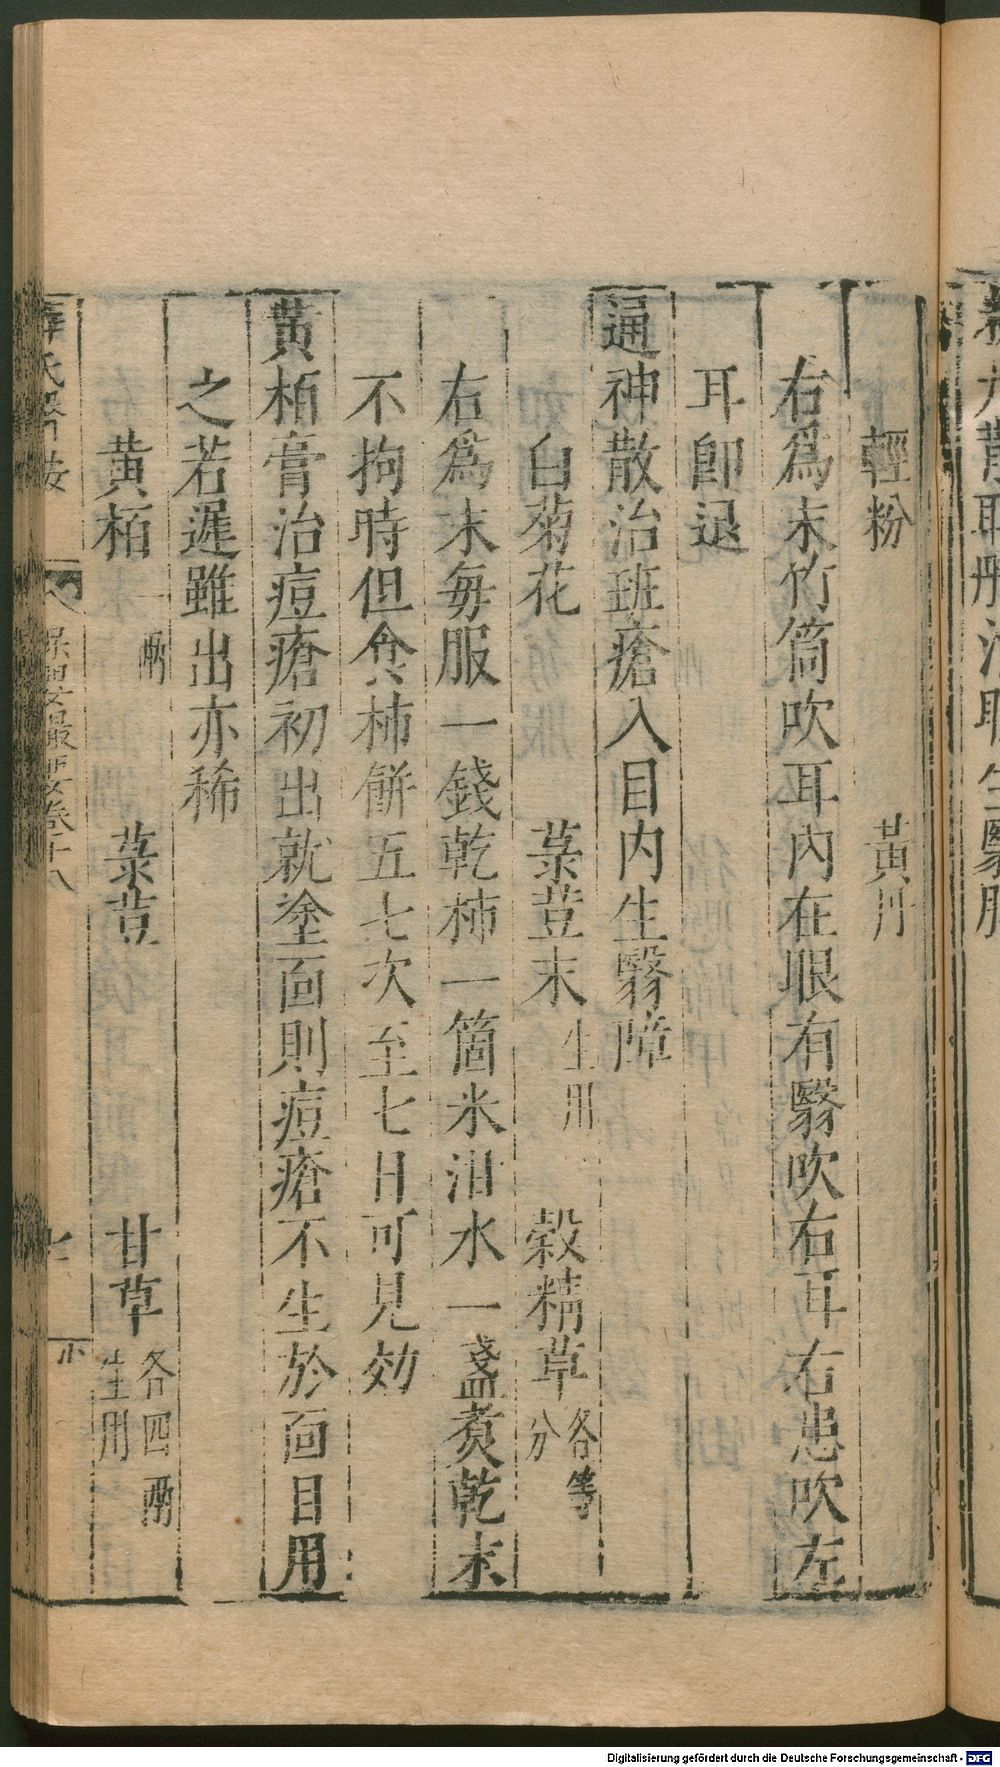 輕粉　黃丹
右爲末竹筒吹耳內在眼有翳吹右耳右患吹左
耳卽退
通神散治班瘡入目內生翳障
白菊花　菉荳末生用　穀精草各等分
右爲末每服一錢乾柿一箇米泔水一盞煮乾末
不拘時但食柿餅五七次至七日可見効
黄栢膏治痘瘡初出就塗面則痘瘡不生於面目用
之若遲雖出亦稀
黄栢一兩　菉荳　甘草各四兩生用
薛氏醫按　保嬰最要卷十八　七
Digitalisierung gefördert durch die Deutsche Forschungsgemeinschaft - DFG